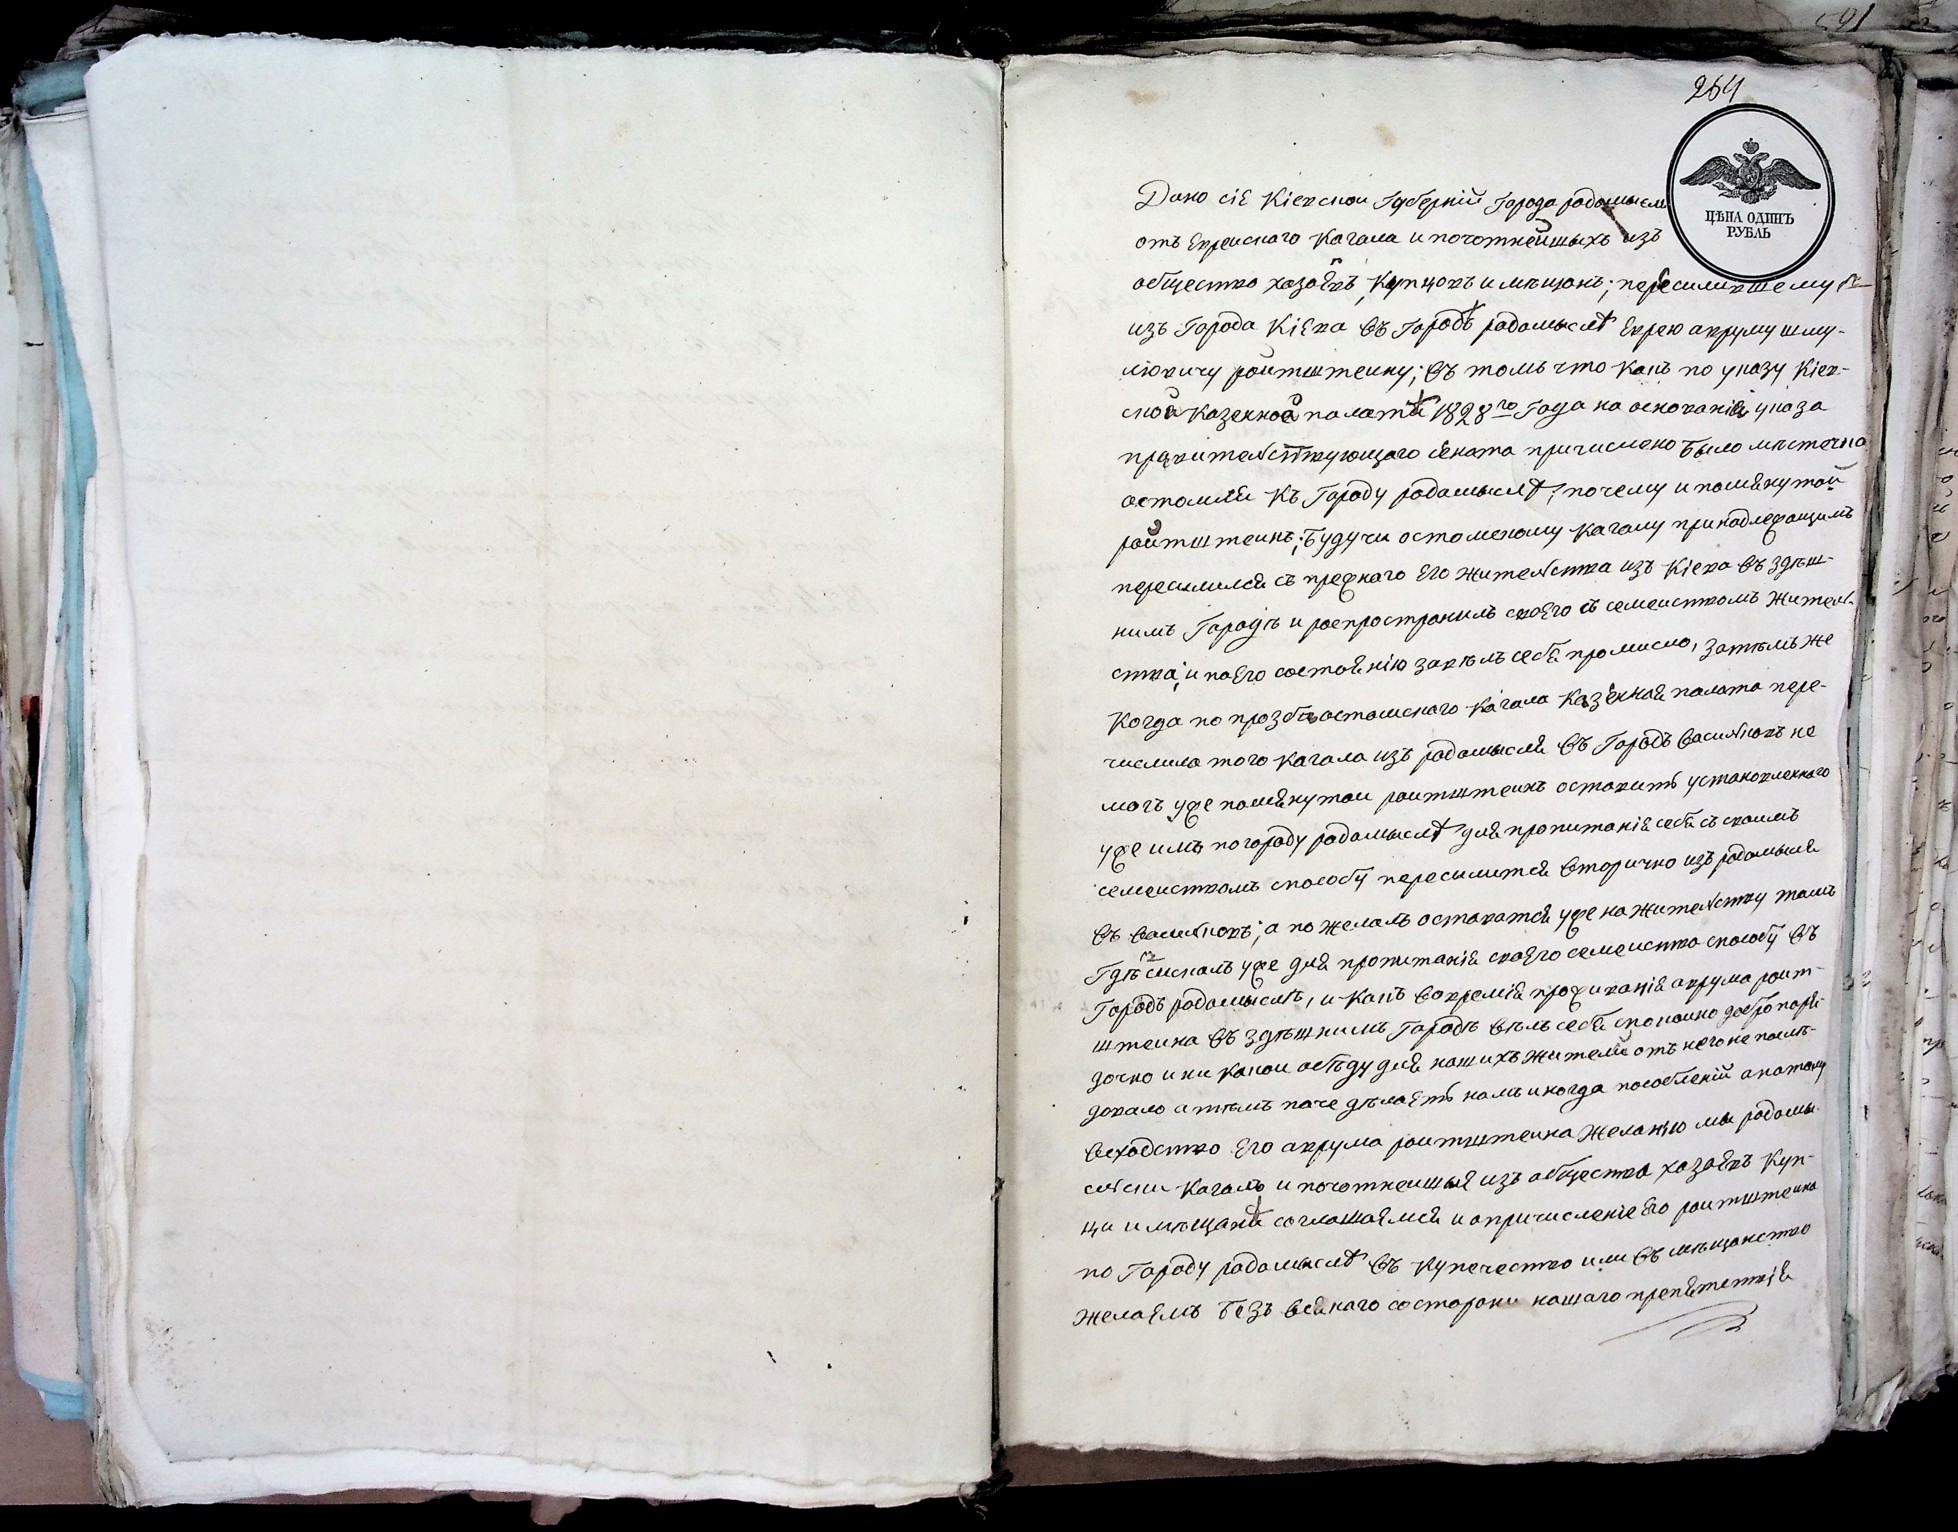 264
ЦѢНА ОДИНЪ
РУБЛЬ
Дано сіе Кіевскои Губерніи Города радомысля
отъ Евреискаго Кагала и почотнейшыхъ изъ
общества хазаевъ, Купцовъ и мѣщанъ; пересилившему
изъ Города Кіева въ Городъ радомыслѣ Еврею авруму шму-
лювичу роитштеину; въ томъ что какъ по указу Кіев-
ской Казенной палаты 1828го Года на основаніи указа
правительствующаго сената причислено было мѣстечко
остомля Къ Городу радомыслѣ, почему и помянутой
роитштеинъ; будучи остомскому Кагалу принадлежащимъ
пересилился съ прежнаго Его жительства изъ Кіева въ здѣш-
нимъ Городѣ и роспространилъ своего съ семеиствомъ житель-
ства, и по Его состоянію завѣлъ себя промисло, затѣмъ же
Когда по прозбѣ остомскаго Кагала Казенная палата пере-
числила того Кагала изъ радомысля въ Городъ Василковъ не
могъ уже помянутои роитштеинъ оставить установленнаго
уже имъ по городу радомыслѣ для пропитанія себя съ своимъ
семеиствомъ способу пересилится вторично изъ радомысля
въ василковъ; а по желалъ оставатся уже на жительству тамъ
Гдѣ сискалъ уже для пропитанія своего семеиства способу въ
Городѣ радомыслѣ, и Какъ вовремія проживанія аврума роит-
штеина въ здѣшнимъ Городѣ вѣлъ себя спокоино добропоря-
дочно и ни какои обѣду для нашихъ жителй отъ него не послѣ-
довало а тѣмъ паче дѣлаетъ намъ иногда пособленіи а потому
всходство Его аврума роитштеина желанію мы радомы-
слски Кагалъ и почотнеишые изъ общества хазаевъ Куп-
ци и мѣщаны соглашаемся и опричисленіе Его роитштеина
по Городу радомыслѣ въ Купечество или въ мѣщанство
желаемъ безъ всякаго состорони нашаго препятствія